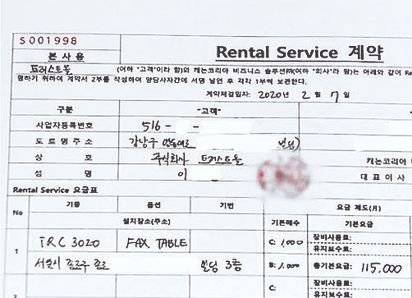 S001998
본 사 용
Rental Service 계약
(이하 "고객"이라 함)와 캐논코리아 비즈니스 솔루션㈜(이하 "회사"라 함)는 아래와 같이 Re
행하기 위하여 계약서 2부를 작성하여 양당사자간에 서명 날인 후 각각 1부씩 보관한다.
계약체결일자: 2020 년 2 월 7 일
구분 "고객"
사업자등록번호 516 - -
도로명주소 강남구 빌딩)
상 호 주식회사 캐논코리아
성 명 이 대 표 이 사
Rental Service 요금표
No 기종 옵션 기번 기본매수 요금 제도(월)
설치장소(주소) 기본요금
1 IRC 3020 FAX TABLE C: 1,000 장비사용료:
유지보수료:
서울시 종로구 종로 빌딩 3층 B: 1,000 총기본요금: 115,000
장비사용료: